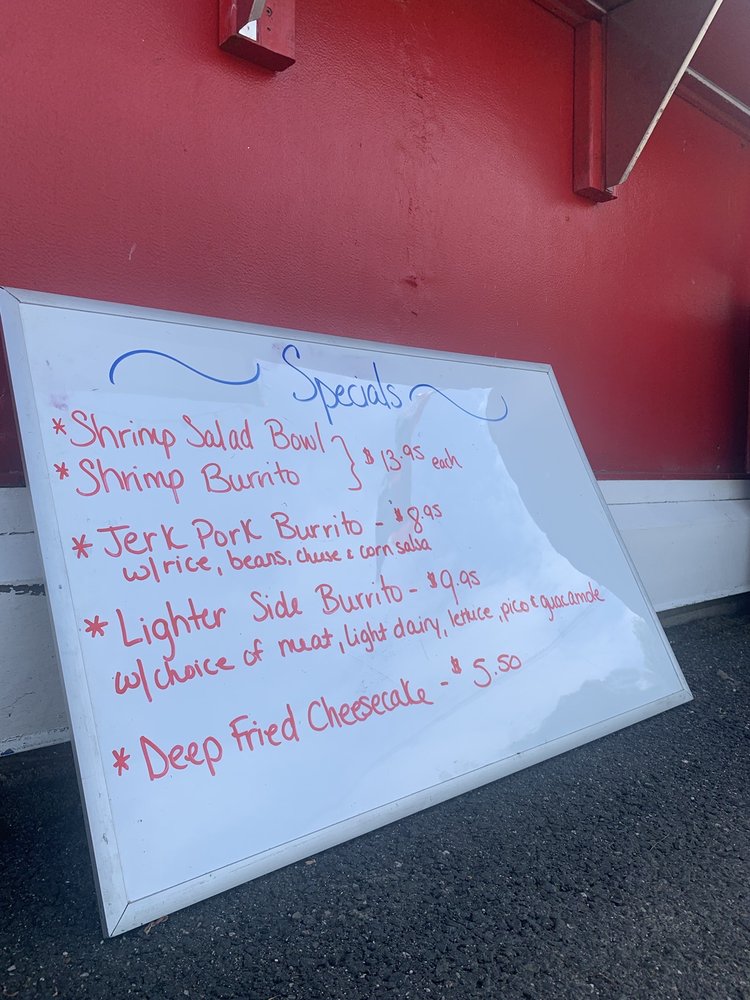 Specials
*Shrimp Salad Bowl
*Shrimp Burrito } $13.95 each
*Jerk Pork Burrito - $8.95
w/rice, beans, cheese & corn salsa
*Lighter Side Burrito - $9.95
w/choice of meat, light dairy, lettuce, pico & guacamole
*Deep Fried Cheesecake - $5.50